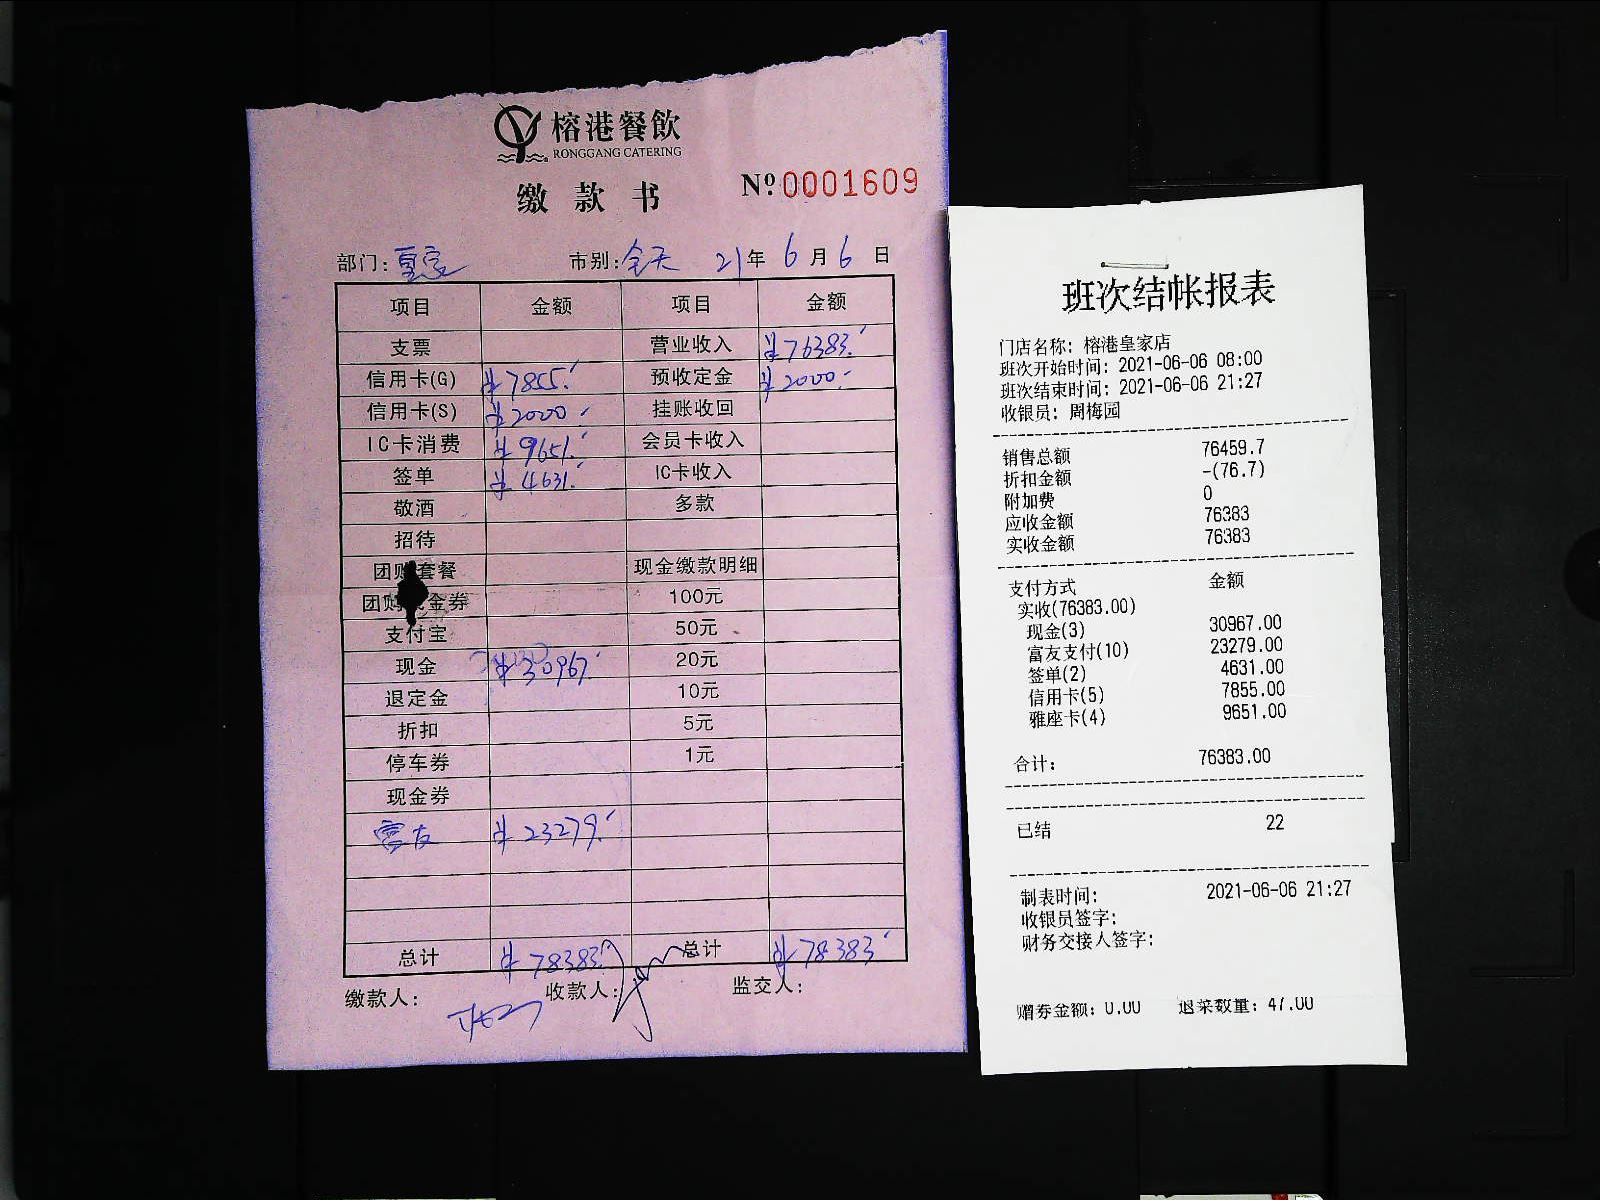 榕港餐飲
RONGGANG CATERING
缴款书
№ 0001609
部门: 皇家 市别: 全天 21年 6月 6日
项目 金额 项目 金额
支票 营业收入 ¥76383.
信用卡(G) ¥7855. 预收定金 ¥2000.
信用卡(S) ¥2000. 挂账收回
IC卡消费 ¥9651. 会员卡收入
签单 ¥4631. IC卡收入
敬酒 多款
招待
团购套餐 现金缴款明细
团购现金券 100元
支付宝 50元
现金 ¥30967. 20元
退定金 10元
折扣 5元
停车券 1元
现金券
富友 ¥23279.
总计 ¥78383. 总计 ¥78383.
缴款人: 收款人: 监交人:
班次结帐报表
门店名称: 榕港皇家店
班次开始时间: 2021-06-06 08:00
班次结束时间: 2021-06-06 21:27
收银员: 周梅园
销售总额 76459.7
折扣金额 -(76.7)
附加费 0
应收金额 76383
实收金额 76383
支付方式 金额
实收(76383.00)
现金(3) 30967.00
富友支付(10) 23279.00
签单(2) 4631.00
信用卡(5) 7855.00
雅座卡(4) 9651.00
合计: 76383.00
已结 22
制表时间: 2021-06-06 21:27
收银员签字:
财务交接人签字:
赠券金额: 0.00 退菜数量: 47.00